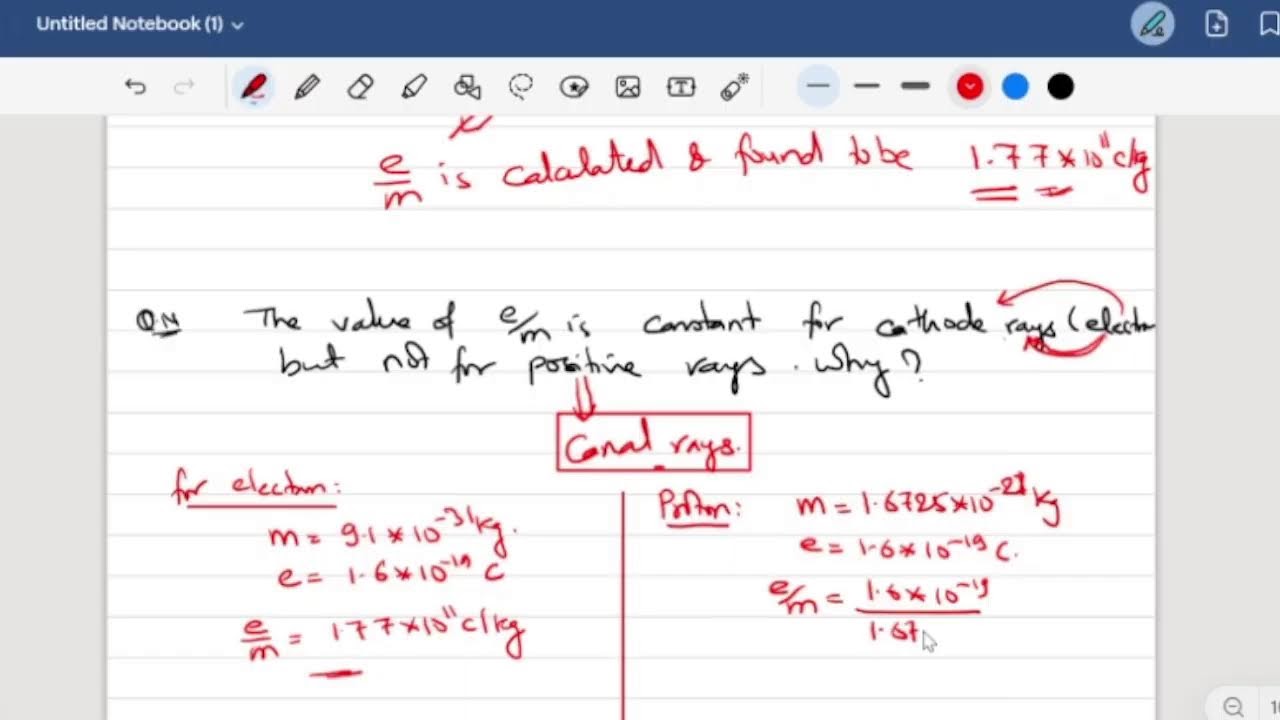 Untitled Notebook (1)
e/m is calculated & found to be 1.77×10¹¹ c/kg
Q.N The value of e/m is constant for cathode rays (electron
but not for positive rays. Why?
Canal rays.
for electron:
m = 9.1×10⁻³¹ kg.
e = 1.6×10⁻¹⁹ C
e/m = 1.77×10¹¹ c/kg
Proton: m = 1.6725×10⁻²⁷ kg
e = 1.6×10⁻¹⁹ C.
e/m = 1.6×10⁻¹⁹
1.67